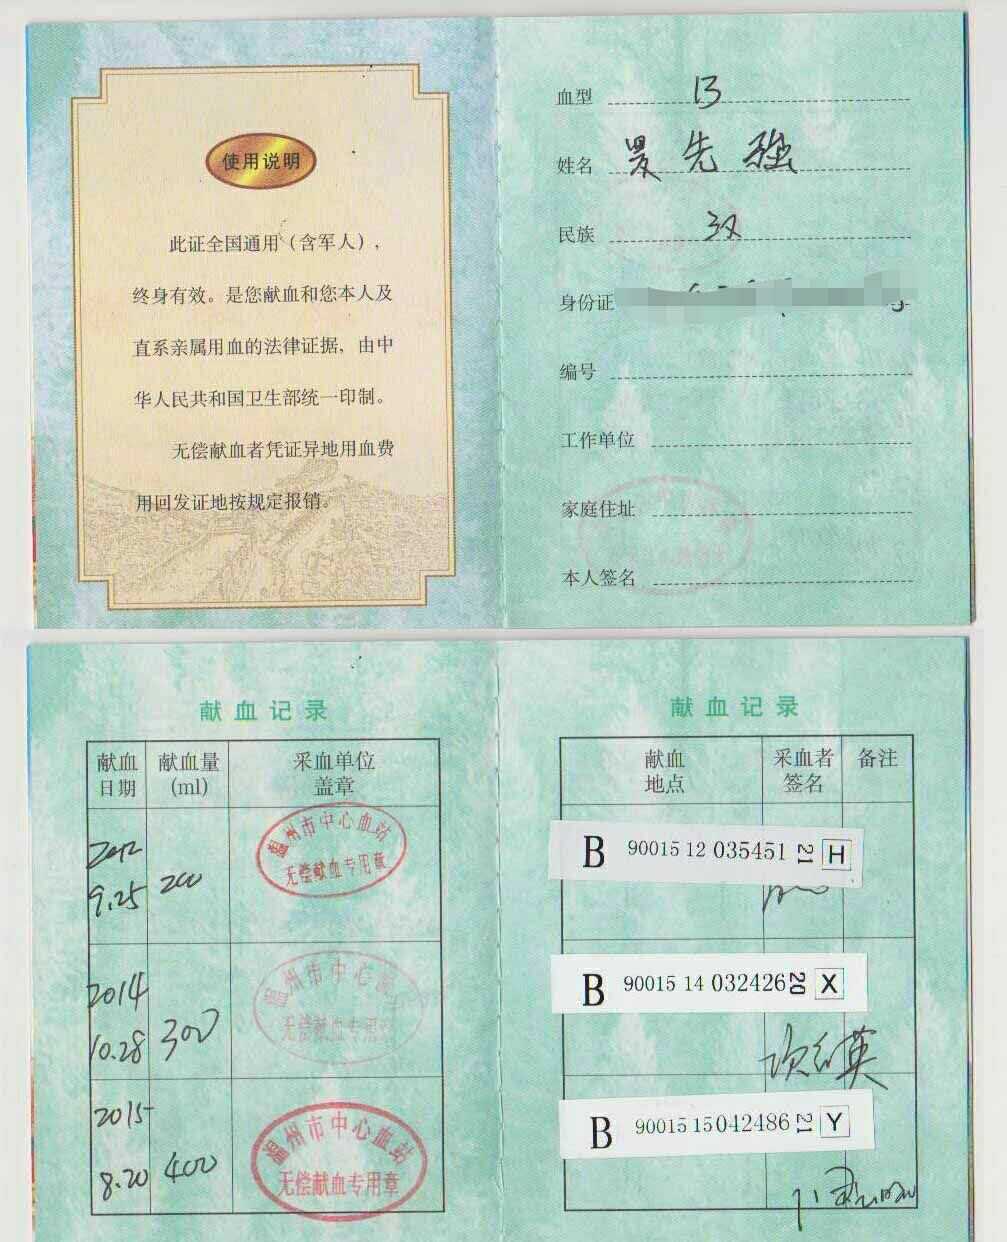 使用说明
此证全国通用（含军人），
终身有效。是您献血和您本人及
直系亲属用血的法律证据，由中
华人民共和国卫生部统一印制。
无偿献血者凭证异地用血费
用回发证地按规定报销。
血型 B
姓名 先
民族 汉
身份证
编号
工作单位
家庭住址
本人签名
献血记录
献血日期 献血量(ml) 采血单位盖章
2012 9.25 200 温州市中心血站 无偿献血专用章
2014 10.28 300 温州市中心血站 无偿献血专用章
2015 8.20 400 温州市中心血站 无偿献血专用章
献血记录
献血地点 采血者签名 备注
B 90015 12 035451 21 H
B 90015 14 032426 20 X
B 90015 15 042486 21 Y